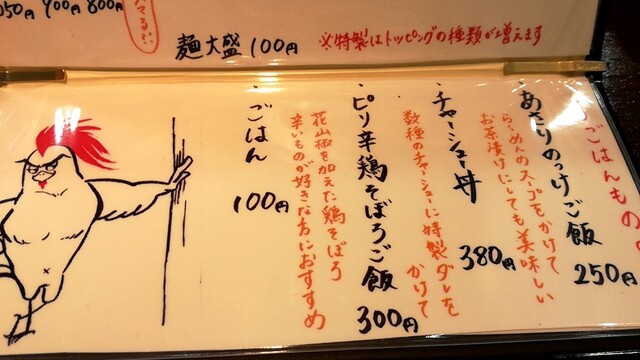 050円 900円 800円
麺大盛100円
※特製はトッピングの種類が増えます
ごはんもの
あさりのっけご飯
250円
らぁめんのスープをかけて
お茶漬けにしても美味しい
チャーシュー丼
380円
数種のチャーシューに特製ダレを
かけて
ピリ辛鶏そぼろご飯
300円
花山椒を加えた鶏そぼろ
辛いものが好きな方におすすめ
ごはん
100円